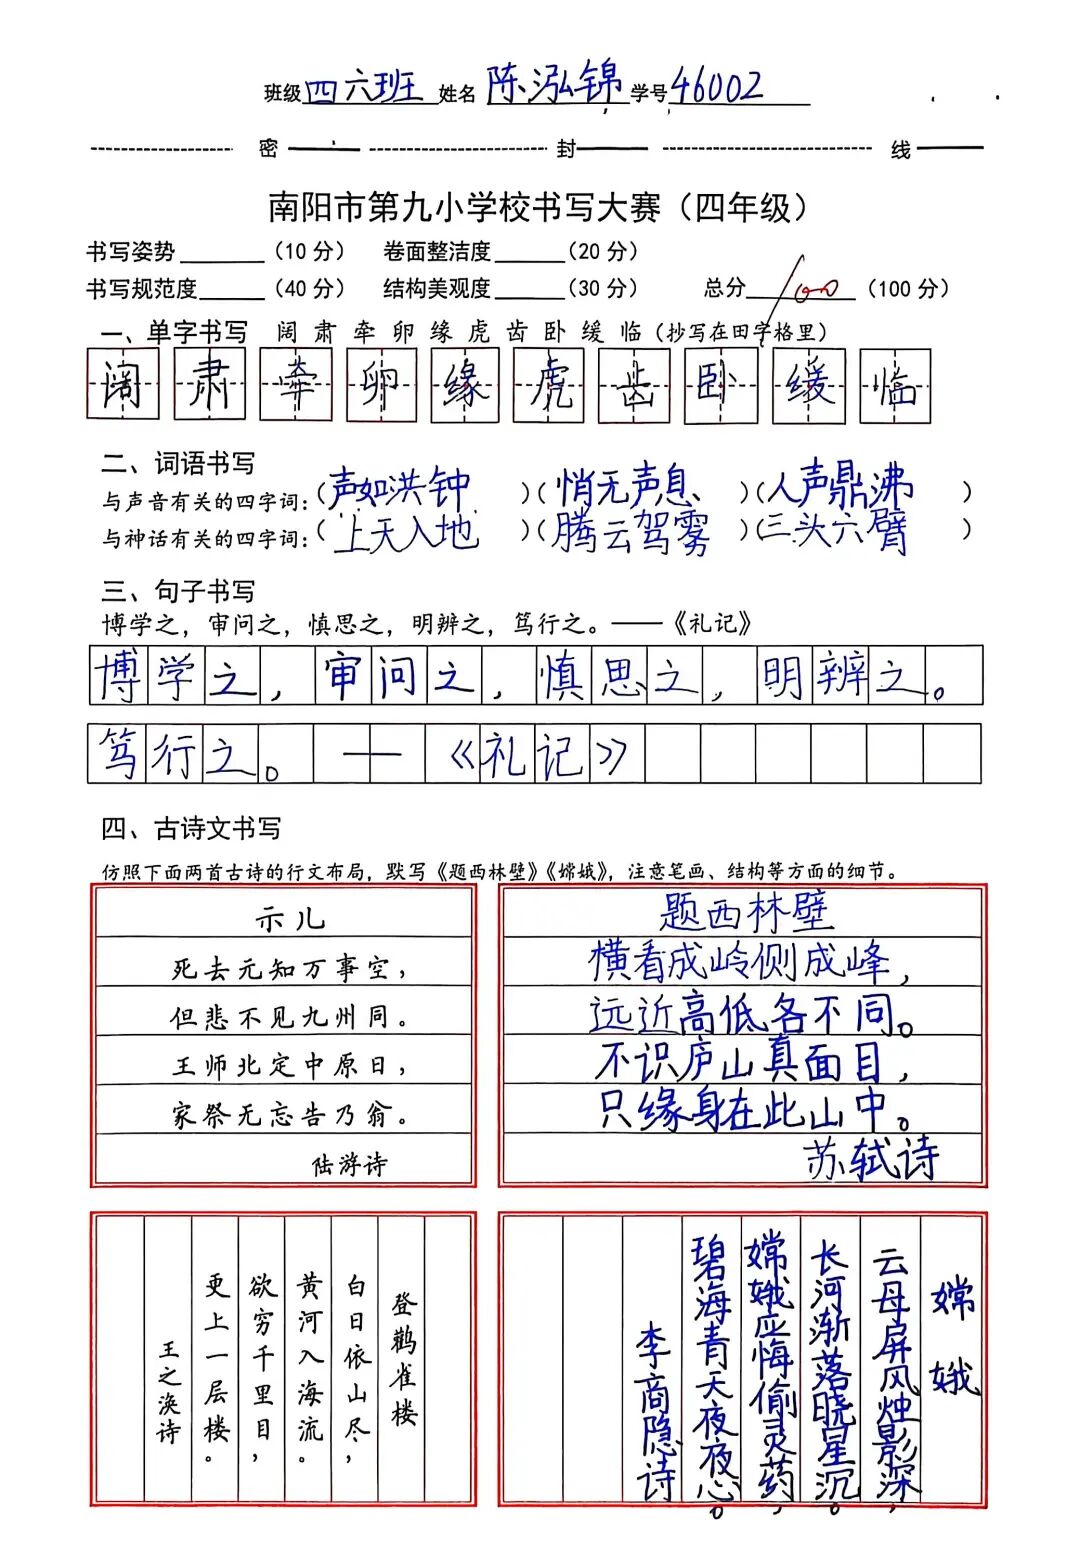 班级 四六班 姓名 陈泓锦 学号 46002
密 封 线
南阳市第九小学校书写大赛（四年级）
书写姿势______（10 分） 卷面整洁度______（20 分）
书写规范度______（40 分） 结构美观度______（30 分） 总分 100 （100 分）
一、单字书写 阔 肃 牵 卵 缘 虎 齿 卧 缓 临（抄写在田字格里）
阔 肃 牵 卵 缘 虎 齿 卧 缓 临
二、词语书写
与声音有关的四字词:（声如洪钟）（悄无声息）（人声鼎沸）
与神话有关的四字词:（上天入地）（腾云驾雾）（三头六臂）
三、句子书写
博学之，审问之，慎思之，明辨之，笃行之。——《礼记》
博学之，审问之，慎思之，明辨之。
笃行之。——《礼记》
四、古诗文书写
仿照下面两首古诗的行文布局，默写《题西林壁》《嫦娥》，注意笔画、结构等方面的细节。
示儿
死去元知万事空，
但悲不见九州同。
王师北定中原日，
家祭无忘告乃翁。
陆游诗
题西林壁
横看成岭侧成峰，
远近高低各不同。
不识庐山真面目，
只缘身在此山中。
苏轼诗
登鹳雀楼
白日依山尽，
黄河入海流。
欲穷千里目，
更上一层楼。
王之涣诗
嫦娥
云母屏风烛影深，
长河渐落晓星沉。
嫦娥应悔偷灵药，
碧海青天夜夜心。
李商隐诗